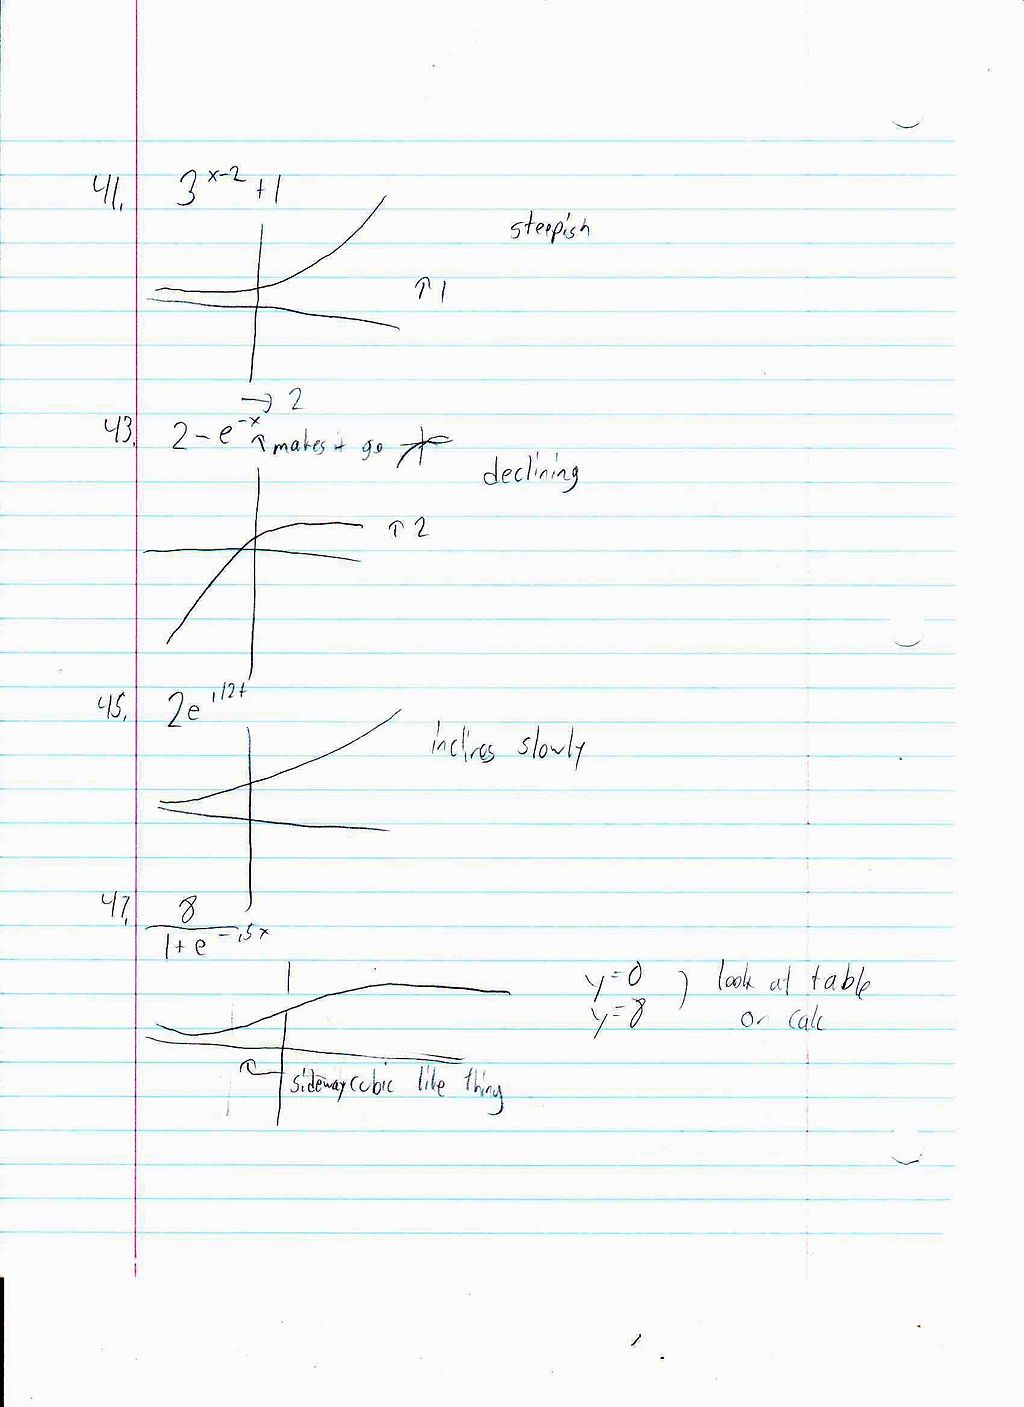 41. 3^(x-2) + 1
steepish
↑1
→ 2
43. 2 - e^(-x)
↑ makes it go
declining
↑2
45. 2e^(.12t)
inclines slowly
47. 8/(1+e^(-.5x))
y=0 ) look at table
y=8 on calc
sideway cubic like thing